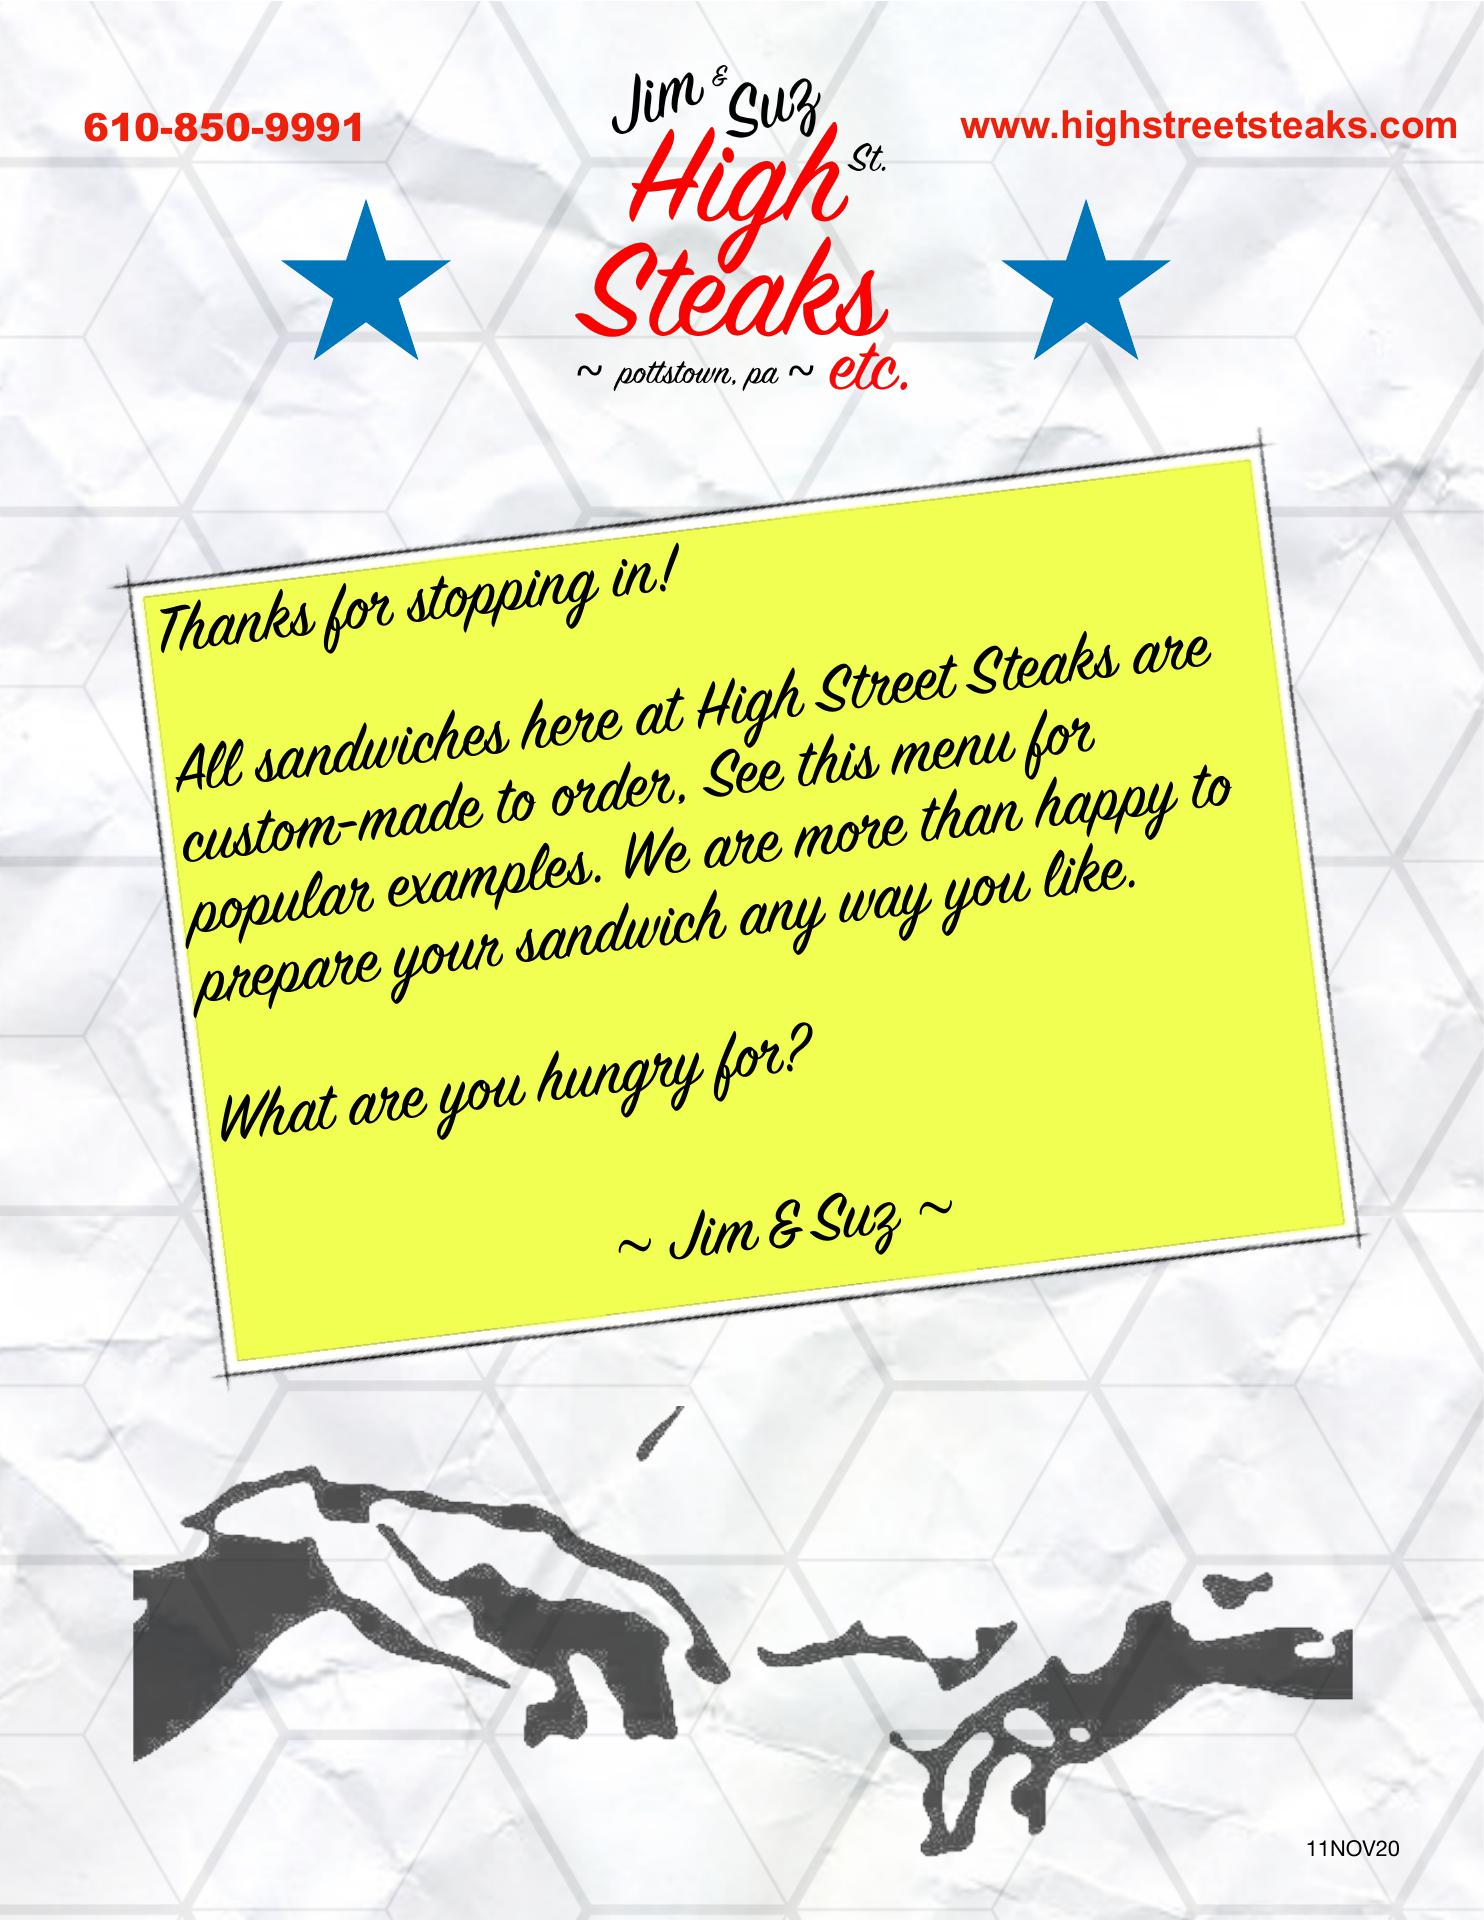 610-850-9991
www.highstreetsteaks.com
Jim & Suz
High St.
Steaks
~ pottstown, pa ~ etc.
Thanks for stopping in!
All sandwiches here at High Street Steaks are
custom-made to order, See this menu for
popular examples. We are more than happy to
prepare your sandwich any way you like.
What are you hungry for?
~ Jim & Suz ~
11NOV20